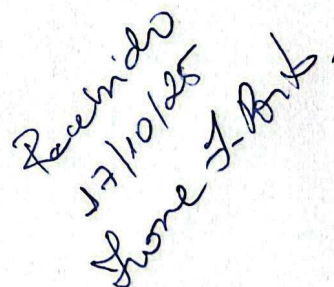 Recebido
17/10/25
Ivone J. Brito